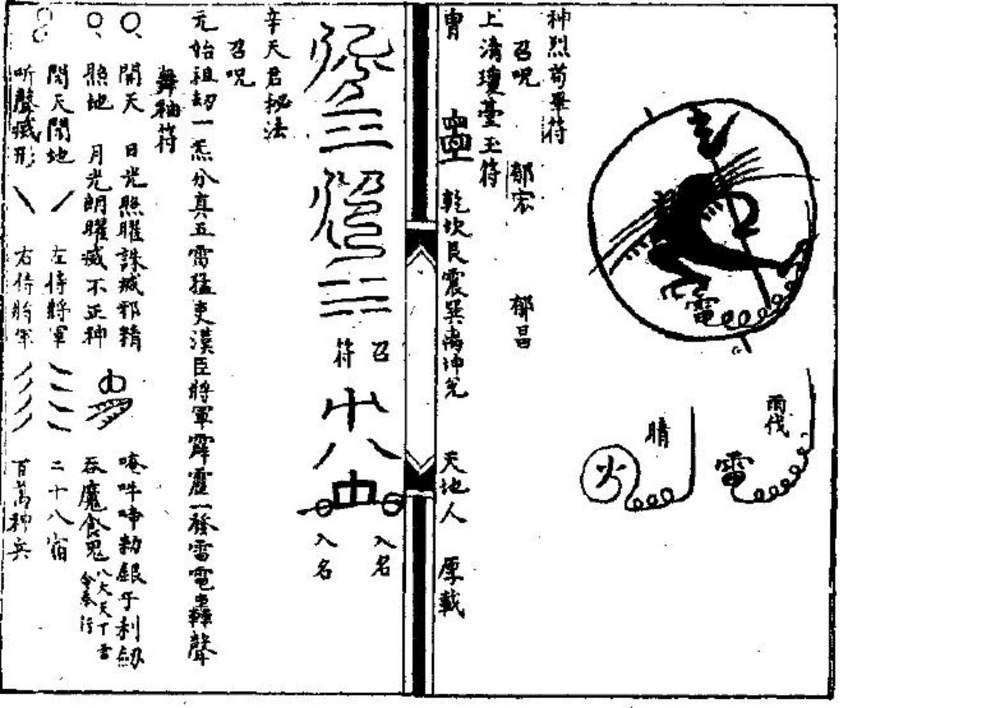 電
雨伐
雷
晴
火
神烈苟畢符
召呪 郁宏 郁昌
上清瓊臺玉符
胄 乾坎艮震巽离坤兑 天地人 厚載
召符
入名 入名
辛天君秘法
召呪
元始祖劫一炁分真五雷猛吏漢臣將軍霹靂一發雷電轟聲
舞袖符
開天 日光照曜誅滅邪精 唵吽啼勑銀牙利劔
照地 月光朗曜滅不正神 吞魔食鬼 八大天丁雷令奉行
閉天閉地 左侍將軍 二十八宿
听聲滅形 右侍將軍 百萬神兵